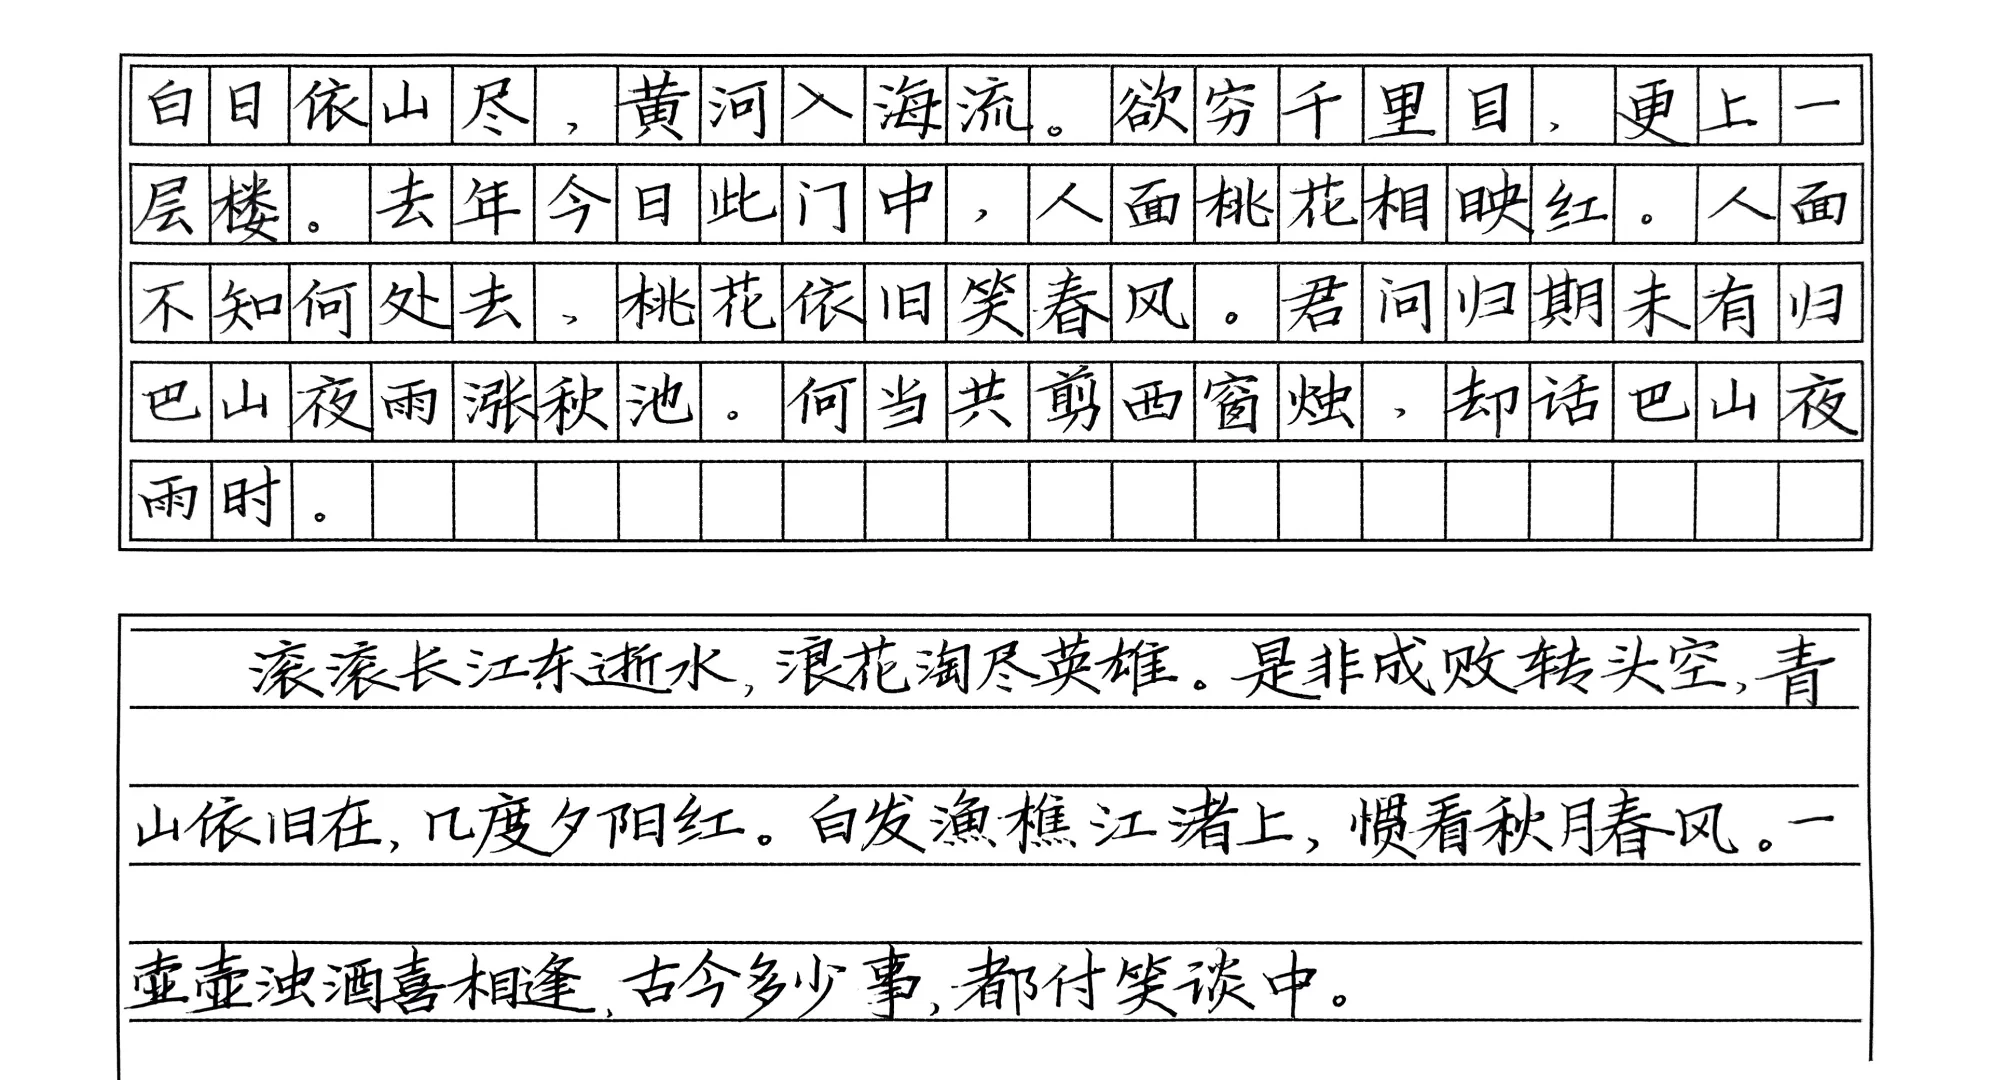 白日依山尽，黄河入海流。欲穷千里目，更上一
层楼。去年今日此门中，人面桃花相映红。人面
不知何处去，桃花依旧笑春风。君问归期未有归
巴山夜雨涨秋池。何当共剪西窗烛，却话巴山夜
雨时。
滚滚长江东逝水，浪花淘尽英雄。是非成败转头空，青
山依旧在，几度夕阳红。白发漁樵江渚上，惯看秋月春风。一
壶壶浊酒喜相逢，古今多少事，都付笑谈中。